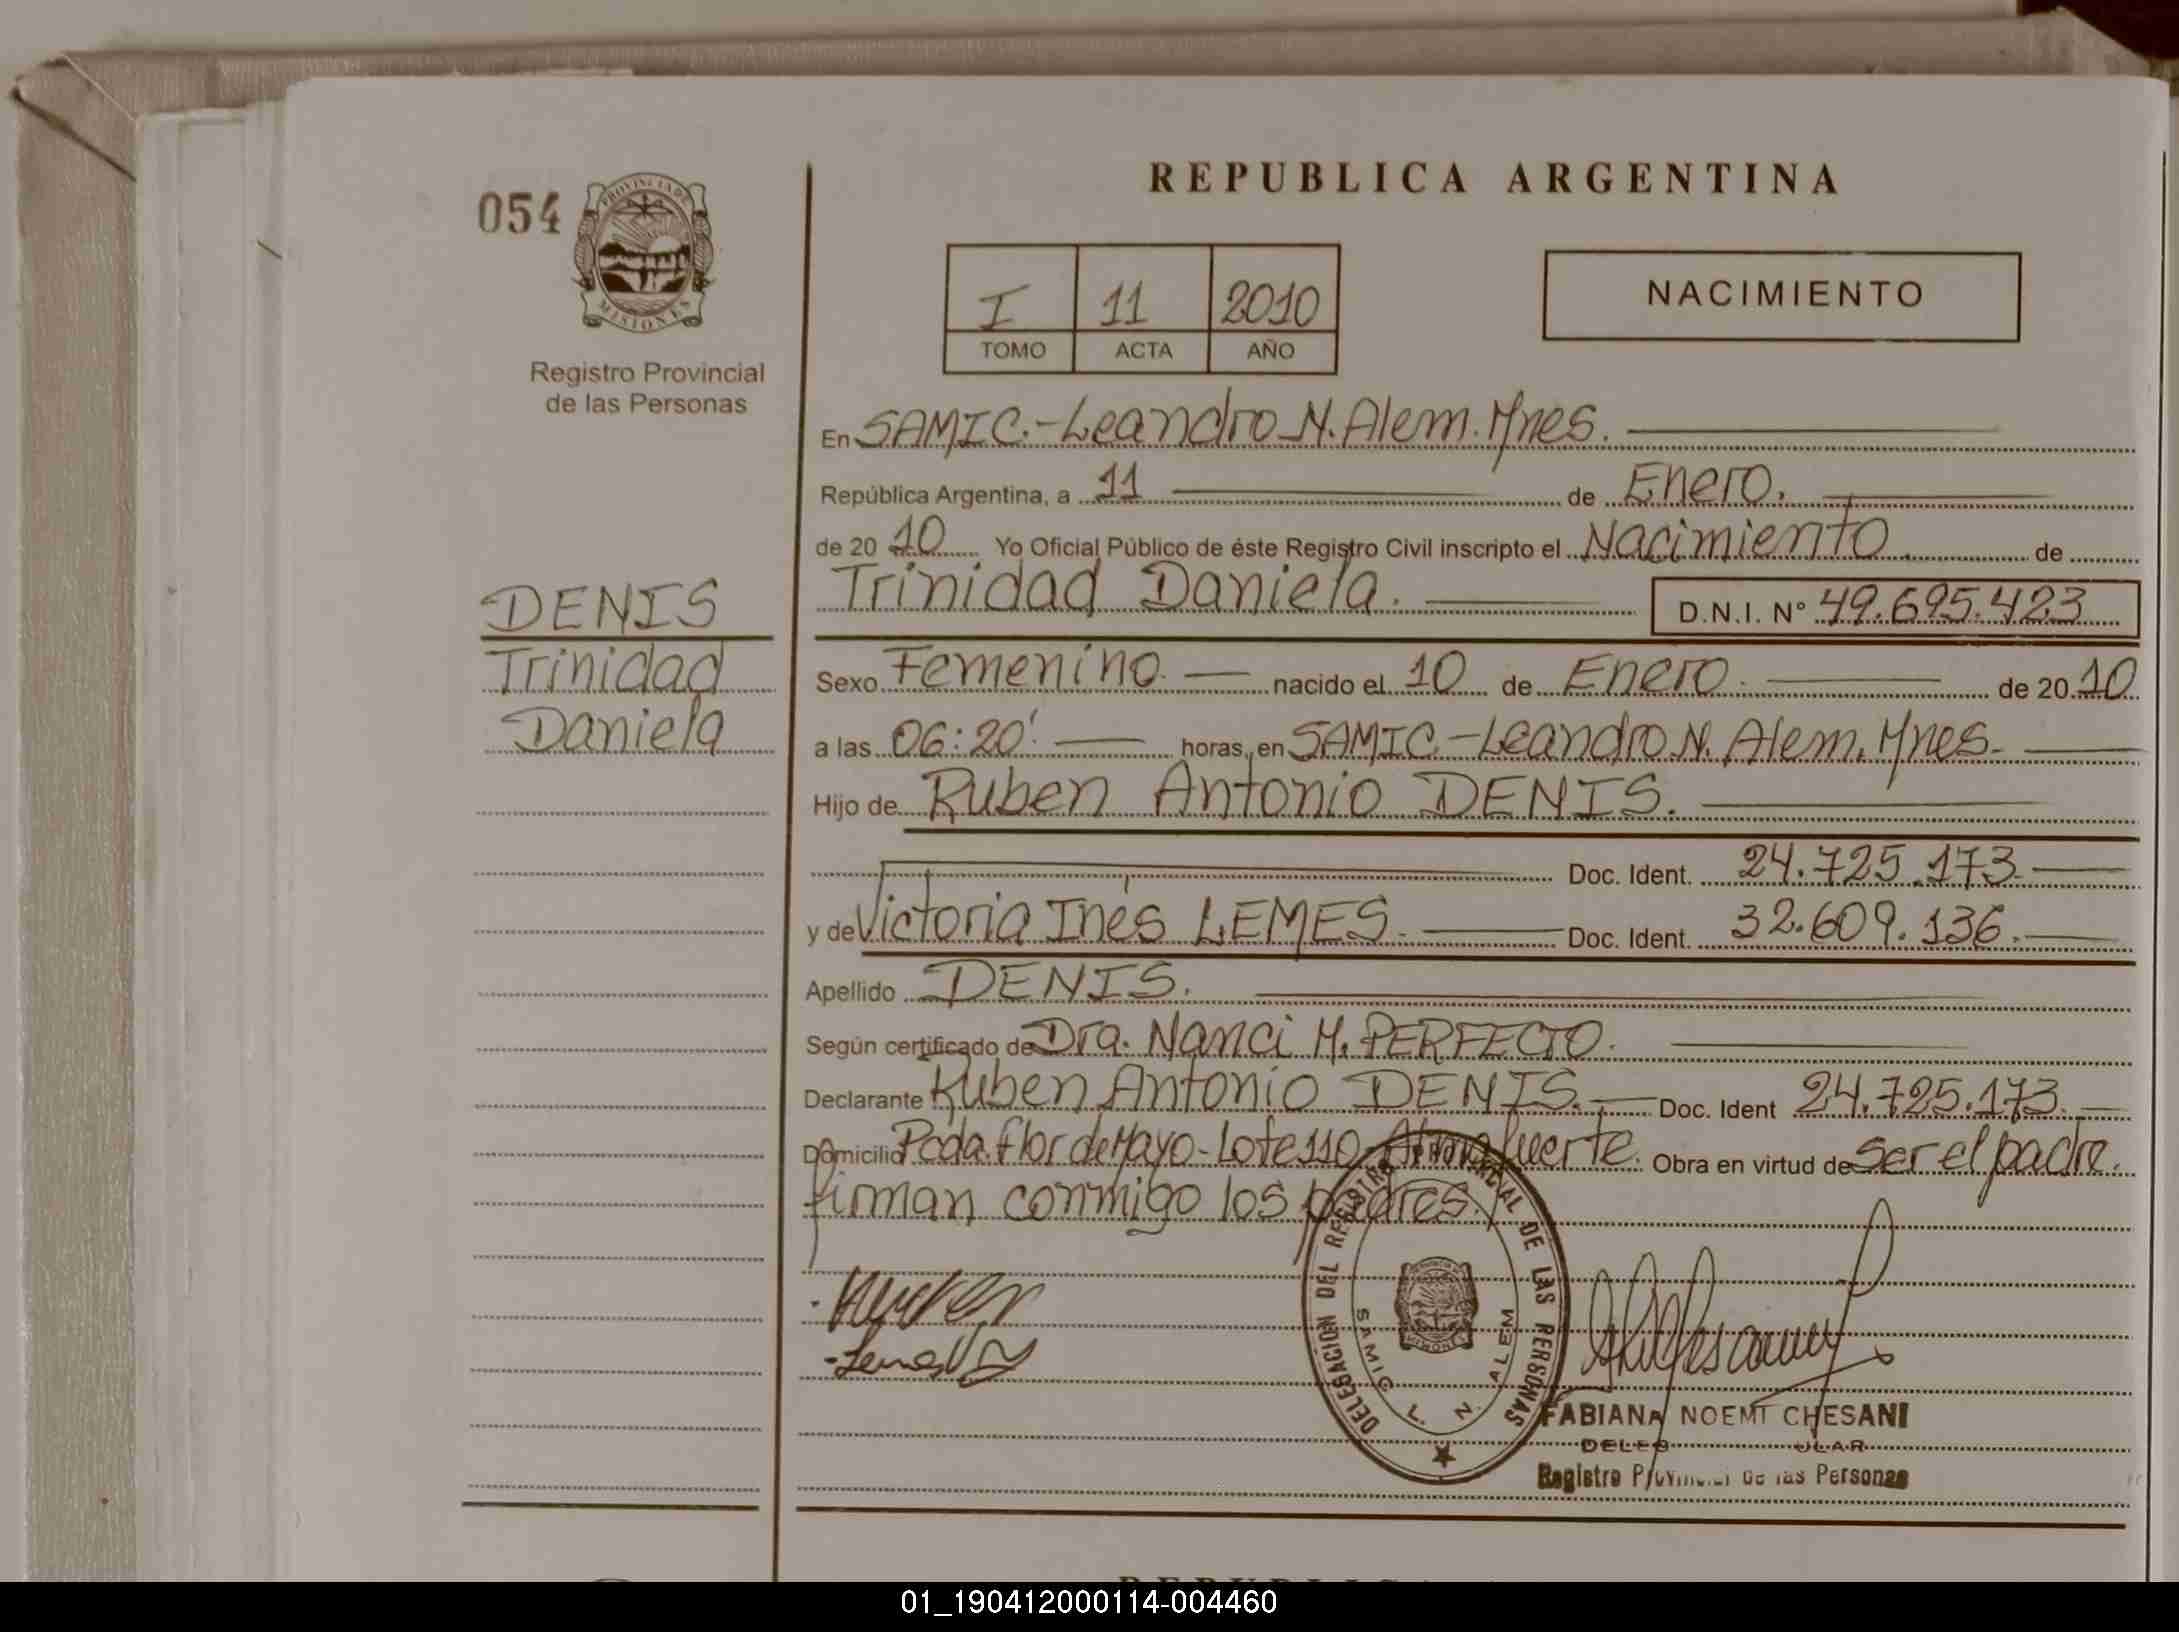 REPUBLICA ARGENTINA
054
PROVINCIA DE
MISIONES
Registro Provincial
de las Personas
I 11 2010
TOMO ACTA AÑO
NACIMIENTO
En SAMIC.-Leandro N. Alem. Mnes.
República Argentina, a 11 de Enero.
de 20 10 Yo Oficial Público de éste Registro Civil inscripto el Nacimiento de
Trinidad Daniela. D.N.I. N° 49.695.423
DENIS
Trinidad
Daniela
Sexo Femenino. nacido el 10 de Enero. de 20 10
a las 06:20' horas, en SAMIC-Leandro N. Alem. Mnes.
Hijo de Ruben Antonio DENIS.
Doc. Ident. 24.725.173
y de Victoria Inés LEMES. Doc. Ident. 32.609.136.
Apellido DENIS.
Según certificado de Dra. Nanci M. PERFECTO.
Declarante Ruben Antonio DENIS. Doc. Ident 24.725.173.
Domicilio Pcda. flor de Mayo-Lote 110 Almafuerte. Obra en virtud de ser el padre.
firman conmigo los padres.
DELEGACION DEL REGISTRO PROVINCIAL DE LAS PERSONAS
SAMIC L. N. ALEM
FABIANA NOEMI CHESANI
Registro Provincial de las Personas
01_190412000114-004460